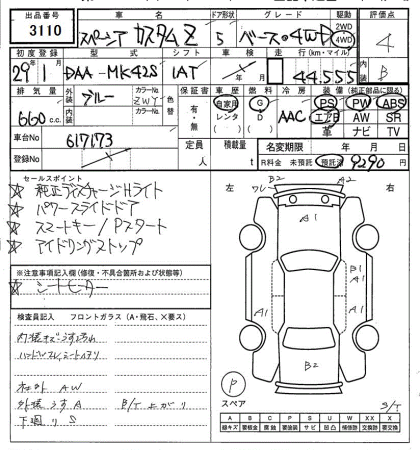 出品番号 車名 ドア形状 グレード 駆動 評価点
3110 スペーシア カスタムZ 5 ベース・4WD 2WD 4WD 4
初度登録 型式 シフト 車検 走行(km・マイル) 内装
29年 1月 DAA-MK42S IAT 44,555 B
排気量 外装 カラーNo. 色替 保証書 車歴 燃料 冷房 装備 (純正部品に限る)
660 c.c. ブルー ZWY 有・無 自家用 レンタ G D AAC PS PW ABS
内装 カラーNo. エアB AW SR
革 ナビ TV
車台No 617173 定員 人 積載量 t 名変期限 年 月 日
登録No R料金 未預託 預託済 9290 円
セールスポイント
☆ 純正ディスチャージHライト
☆ パワースライドドア
☆ スマートキー/Pスタート
☆ アイドリングストップ
※注意事項記入欄 (修復・不具合箇所および状態等)
☆ シートヒーター
検査員記入 フロントガラス (A・飛石、×要ス)
内装キズ・うすヨゴレ
外装うすA B/T上がり
下廻りS
左 右
B2 A2
ワレ
A1
B1
A1
A1
A1
B2
P
スペア
S/T
A B C P S U W X XX
線キズ 要板金 腐蝕 要塗装 サビ 凹凸 補修跡 要交換 交換済